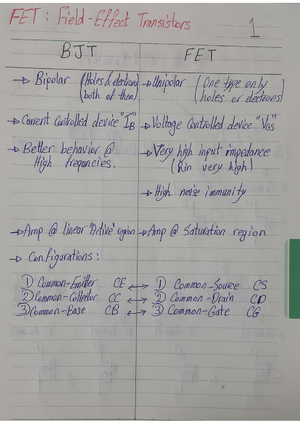 FET : Field-Effect Transistors
1
BJT FET
→ Bipolar (Holes & electrons both of them) → Unipolar (One type only holes or electrons)
→ Current Controlled device "IB" → Voltage Controlled device "VGS"
→ Better behavior @ High frequencies. → Very high input impedance (Rin very high)
→ High noise immunity
→ Amp @ linear "Active" region → Amp @ Saturation region
→ Configurations :
① Common-Emitter CE ↔ ① Common-Source CS
② Common-Collector CC ↔ ② Common-Drain CD
③ Common-Base CB ↔ ③ Common-Gate CG